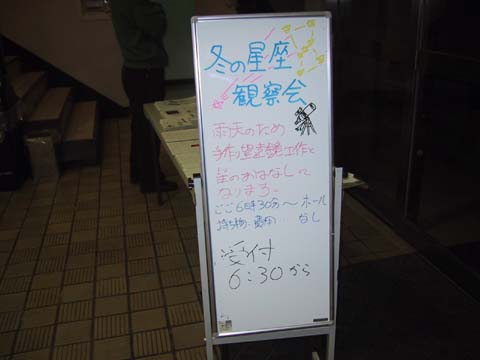 冬の星座
観察会
雨天のため
手作り望遠鏡工作と
星のおはなしに
なります。
ごご6時30分〜ホール
持ち物・費用 なし
受付
6:30から